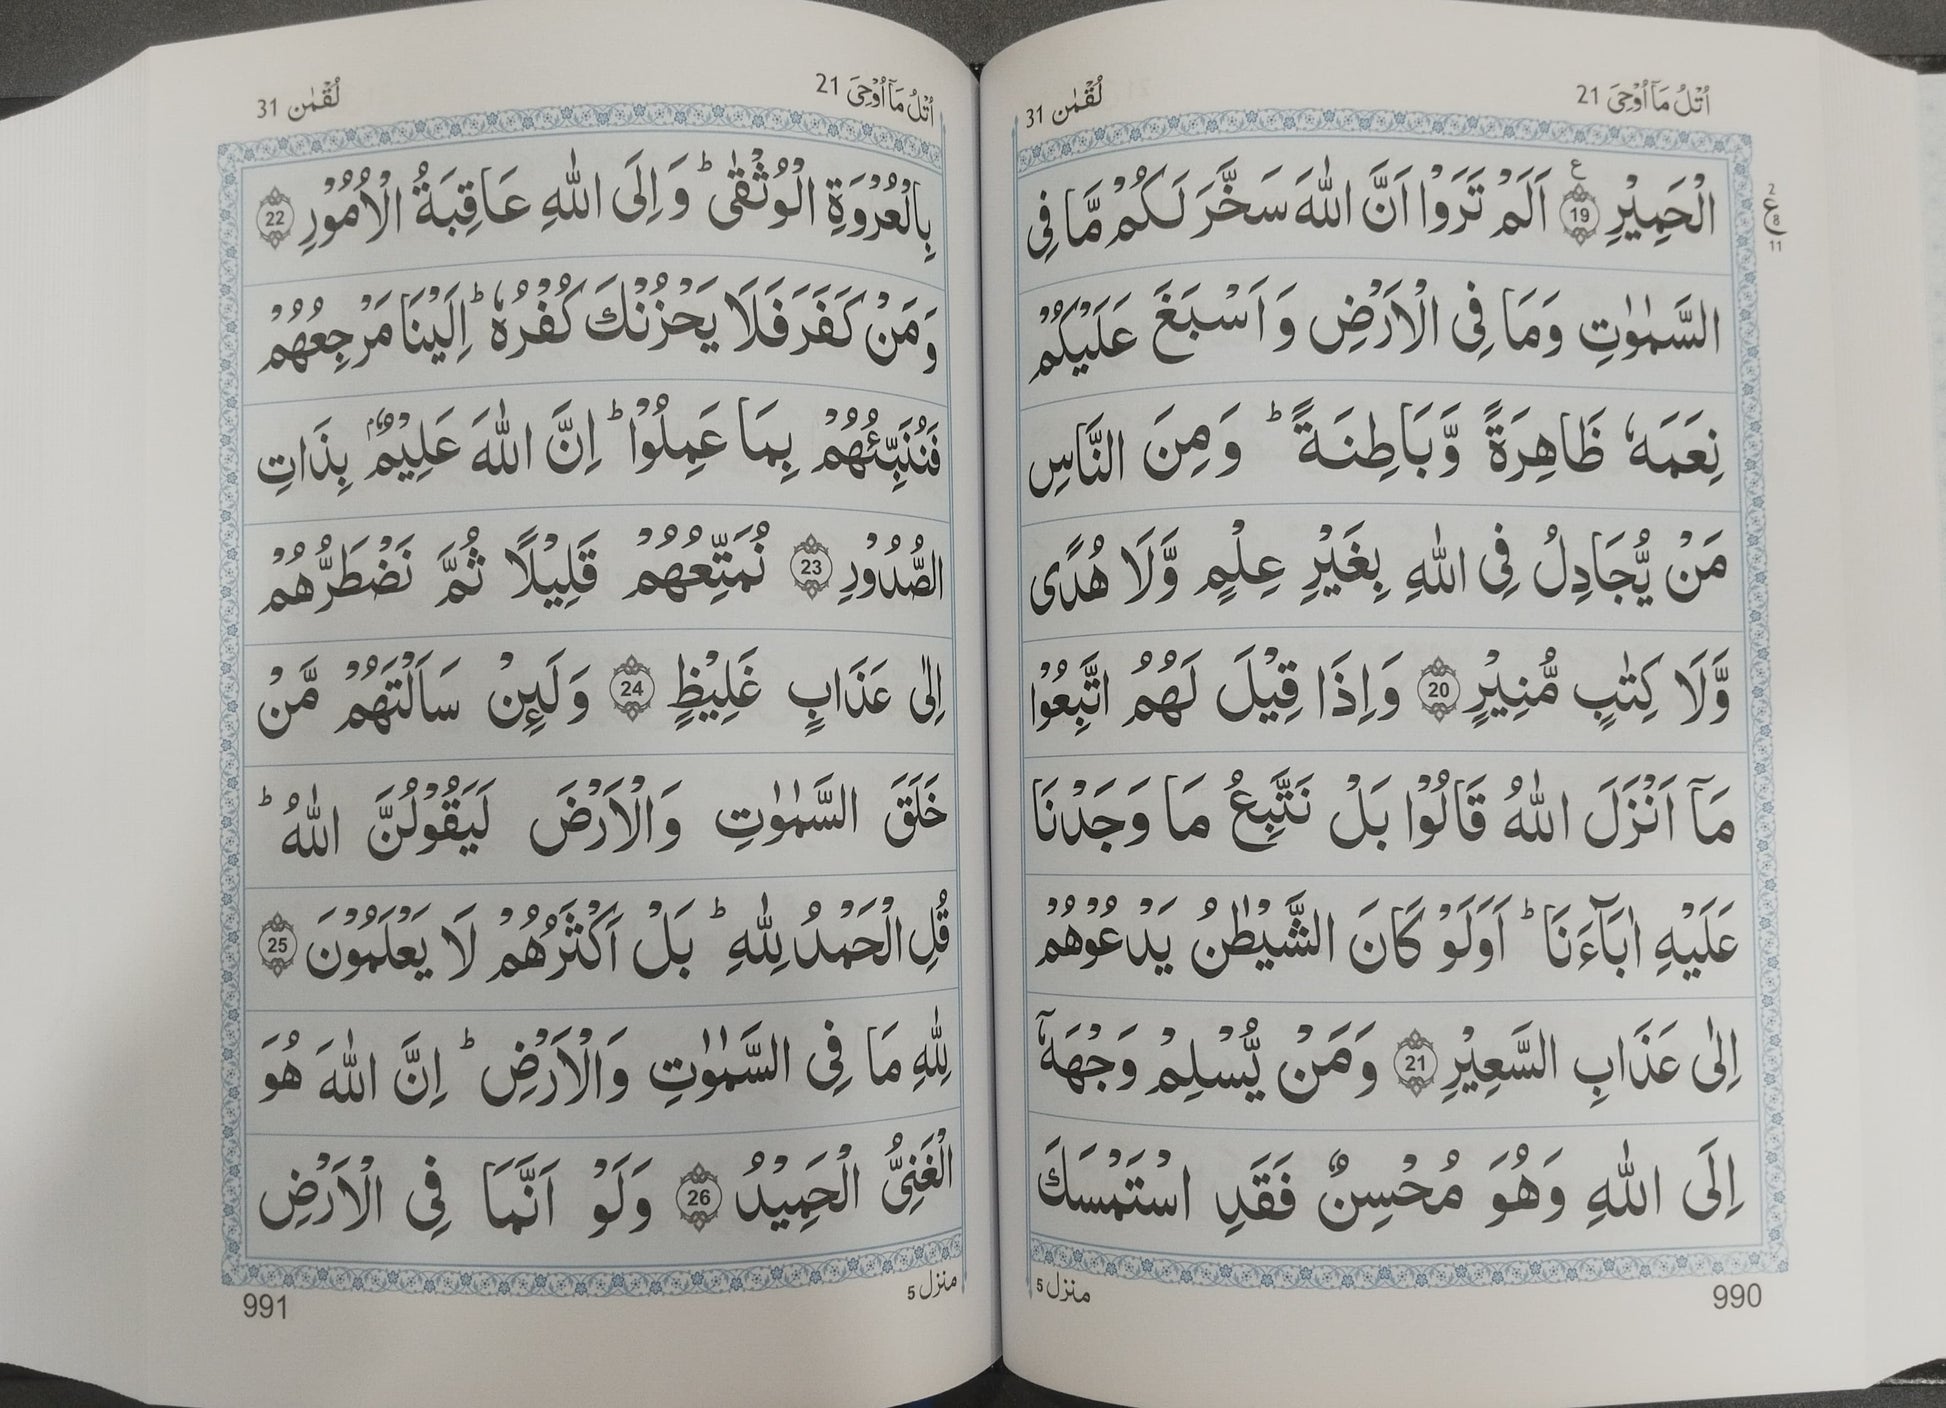 اُتْلُ مَآ اُوْحِیَ 21
لُقْمٰن 31
الْحَمِیْرِ ﴿19﴾ ع اَلَمْ تَرَوْا اَنَّ اللّٰهَ سَخَّرَ لَكُمْ مَّا فِی
2
ع
8
11
السَّمٰوٰتِ وَمَا فِی الْاَرْضِ وَاَسْبَغَ عَلَیْكُمْ
نِعَمَهٗ ظَاهِرَةً وَّبَاطِنَةً ؕ وَمِنَ النَّاسِ
مَنْ یُّجَادِلُ فِی اللّٰهِ بِغَیْرِ عِلْمٍ وَّلَا هُدًی
وَّلَا كِتٰبٍ مُّنِیْرٍ ﴿20﴾ وَاِذَا قِیْلَ لَهُمُ اتَّبِعُوْا
مَآ اَنْزَلَ اللّٰهُ قَالُوْا بَلْ نَتَّبِعُ مَا وَجَدْنَا
عَلَیْهِ اٰبَآءَنَا ؕ اَوَلَوْ كَانَ الشَّیْطٰنُ یَدْعُوْهُمْ
اِلٰی عَذَابِ السَّعِیْرِ ﴿21﴾ وَمَنْ یُّسْلِمْ وَجْهَهٗۤ
اِلَی اللّٰهِ وَهُوَ مُحْسِنٌ فَقَدِ اسْتَمْسَكَ
منزل 5
990
اُتْلُ مَآ اُوْحِیَ 21
لُقْمٰن 31
بِالْعُرْوَةِ الْوُثْقٰی ؕ وَاِلَی اللّٰهِ عَاقِبَةُ الْاُمُوْرِ ﴿22﴾
وَمَنْ كَفَرَ فَلَا یَحْزُنْكَ كُفْرُهٗ ؕ اِلَیْنَا مَرْجِعُهُمْ
فَنُنَبِّئُهُمْ بِمَا عَمِلُوْا ؕ اِنَّ اللّٰهَ عَلِیْمٌۢ بِذَاتِ
الصُّدُوْرِ ﴿23﴾ نُمَتِّعُهُمْ قَلِیْلًا ثُمَّ نَضْطَرُّهُمْ
اِلٰی عَذَابٍ غَلِیْظٍ ﴿24﴾ وَلَىِٕنْ سَاَلْتَهُمْ مَّنْ
خَلَقَ السَّمٰوٰتِ وَالْاَرْضَ لَیَقُوْلُنَّ اللّٰهُ ؕ
قُلِ الْحَمْدُ لِلّٰهِ ؕ بَلْ اَكْثَرُهُمْ لَا یَعْلَمُوْنَ ﴿25﴾
لِلّٰهِ مَا فِی السَّمٰوٰتِ وَالْاَرْضِ ؕ اِنَّ اللّٰهَ هُوَ
الْغَنِیُّ الْحَمِیْدُ ﴿26﴾ وَلَوْ اَنَّمَا فِی الْاَرْضِ
منزل 5
991